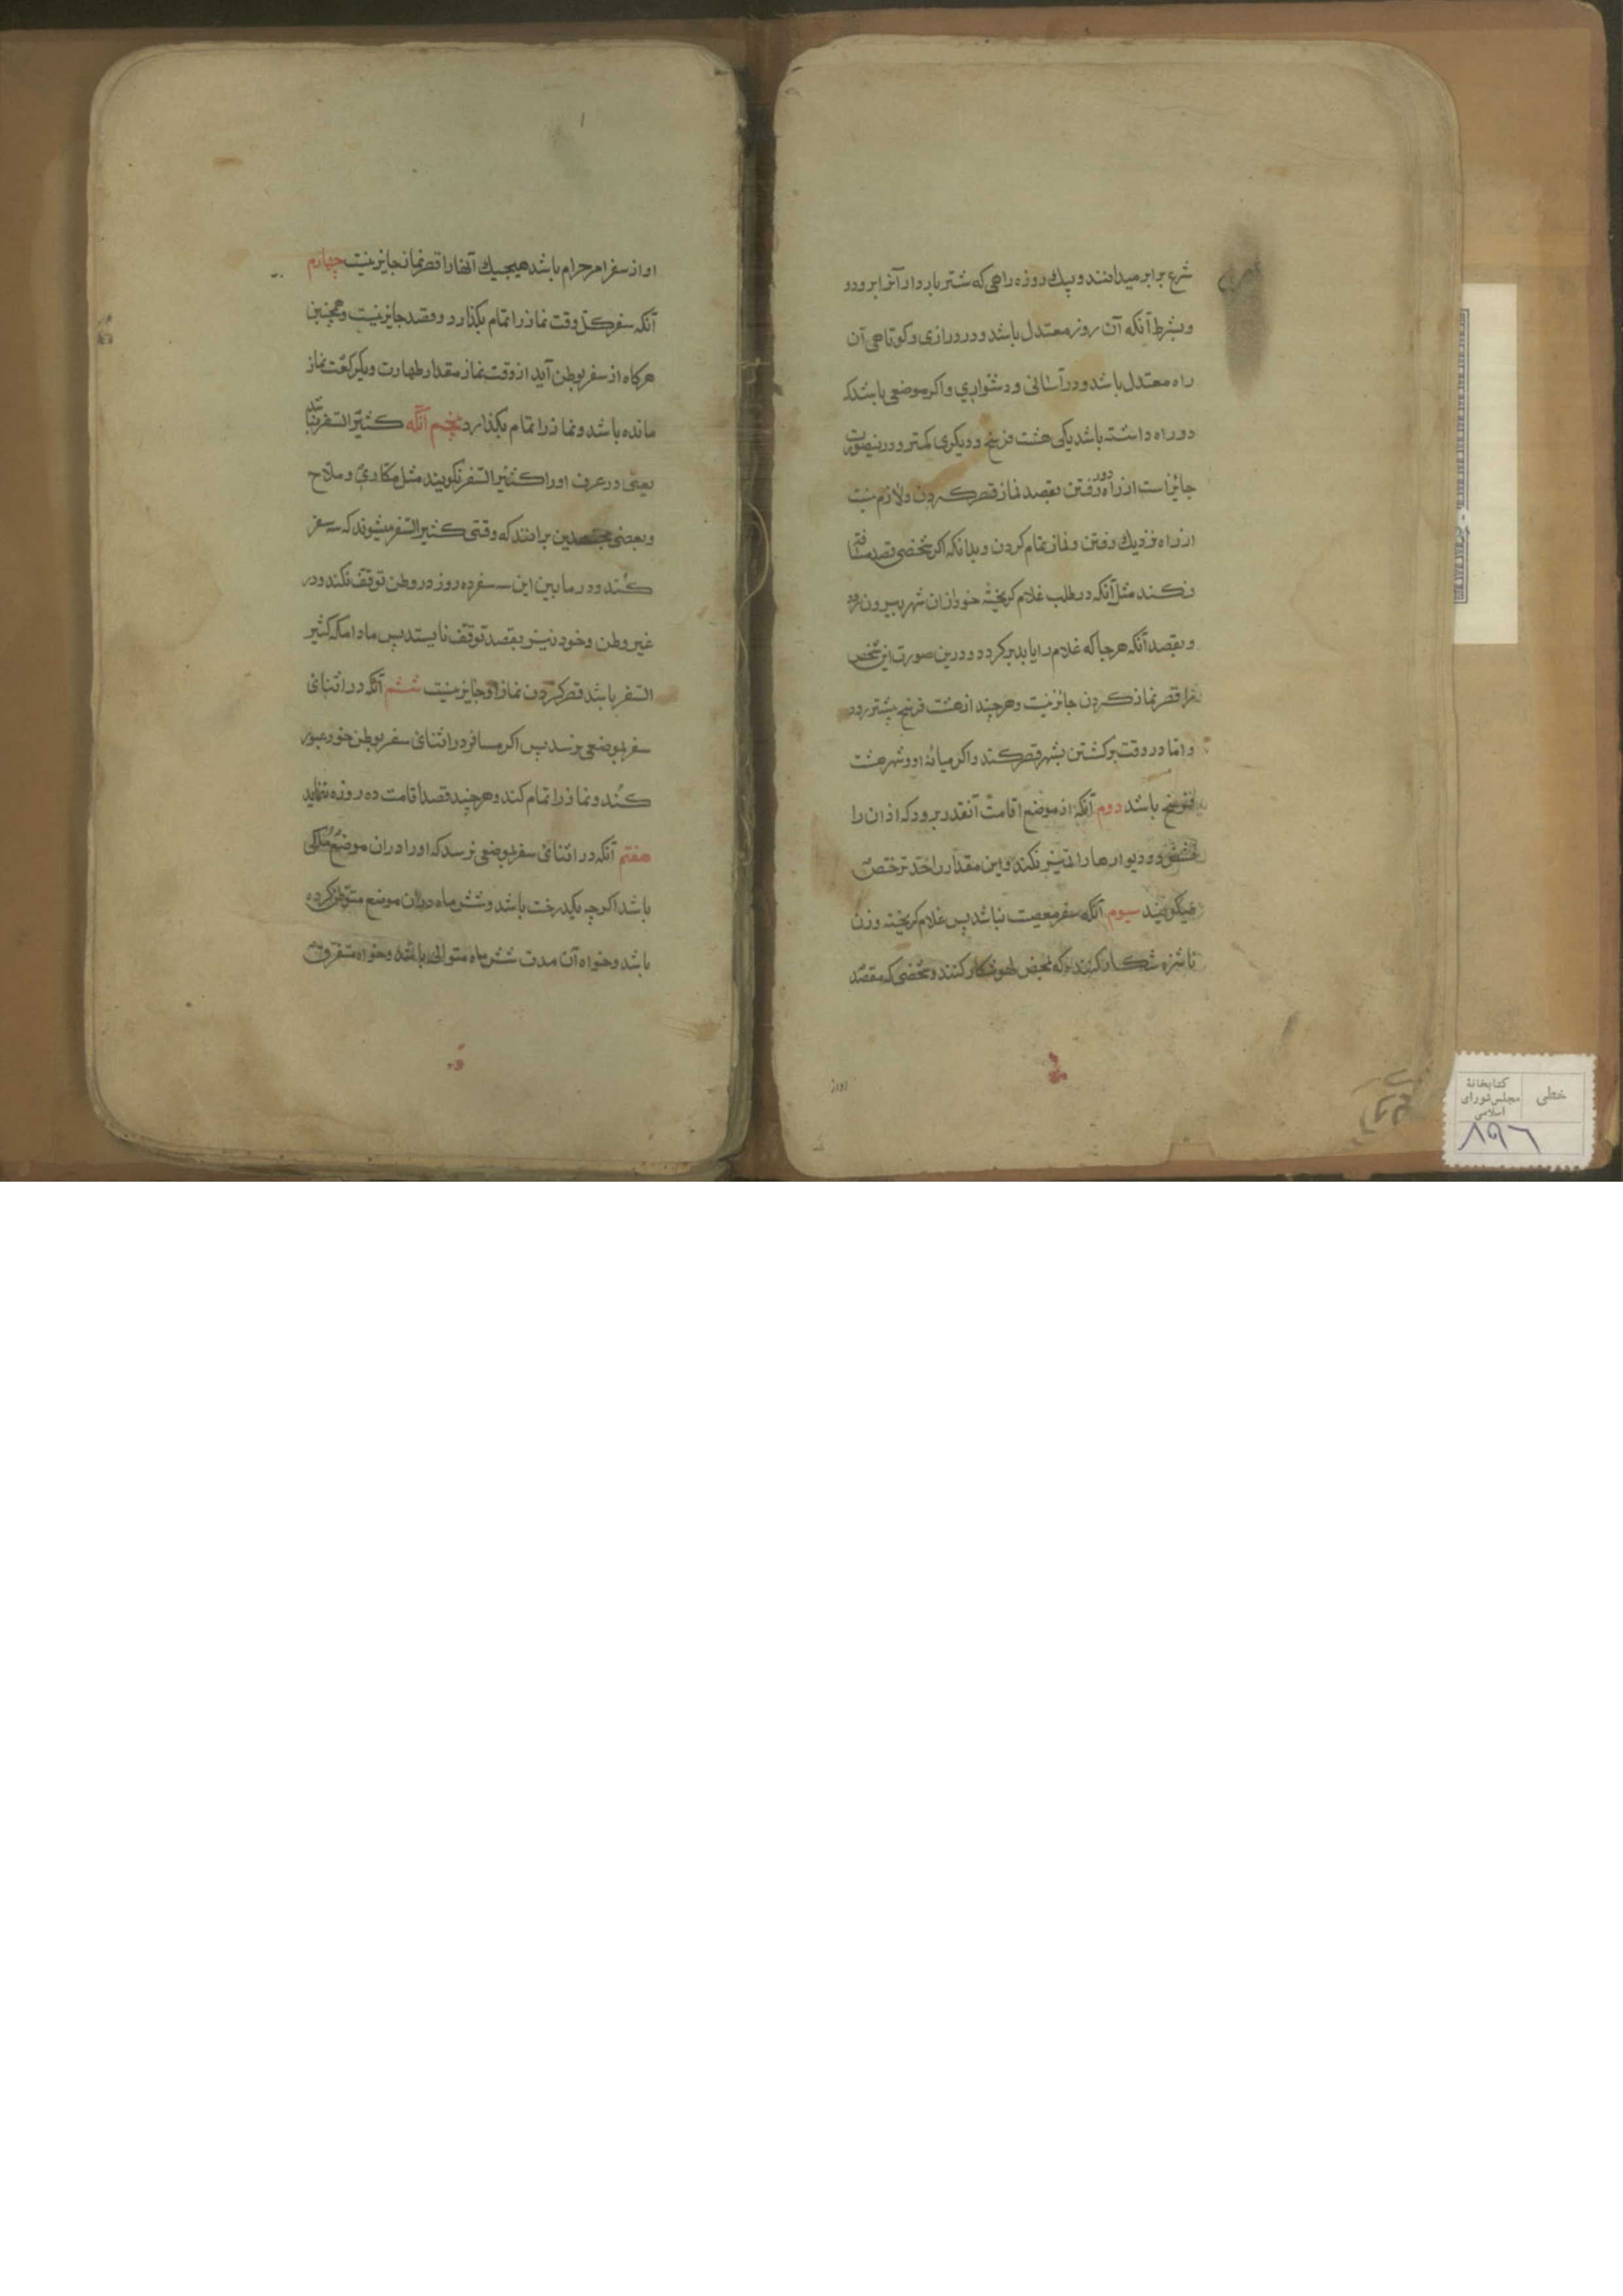 شرع برابر میدانند و یک روزه راهی که شتر باردار آنرا برود و
و بشرط آنکه آن روز معتدل باشد و در درازی و کوتاهی آن
راه معتدل باشد و در آسانی و دشواری و اکر موضعی باشد که
دو راه داشته باشد یکی هشت فرسخ و دیکری کمتر و درینصورت
جائز است از راه دور رفتن بقصد نماز قصر کردن و لازم نیست
از راه نزدیك رفتن و نماز تمام کردن و بدانکه اکر شخصی قصد مسافت
نکند مثل آنکه در طلب غلام کریخته خود از ان شهر بیرون رود
و بقصد آنکه هرجا که غلام را یابد برکردد و درین صورت این شخص
را قصر نماز کردن جائز نیست و هرچند از هشت فرسخ بیشتر رود
و اما در وقت برکشتن بشهر قصر کند و اکر میانهٔ او و شهر هشت
فرسخ باشد دوم آنکه از موضع اقامت آنقدر برود که اذان را
نشنود و دیوارها را تمیز نکند و این مقدار را حد ترخص
میکویند سیوم آنکه سفر معصیت نباشد پس غلام کریخته و زن
ناشزه شکار کننده که بمحض لهو شکار کنند و شخصی که مقصد
او از
او از سفر امر حرام باشد هیچیك آنها را قصر نماز جایز نیست چهارم
آنکه سفر کل وقت نماز را تمام بکذارد و قصد جایز نیست و همچنین
هرکاه از سفر بوطن آید از وقت نماز مقدار طهارت و یکرکعت نماز
مانده باشد و نماز را تمام بکذارد پنجم آنکه کثیر السفر نباشد
یعنی در عرف او را کثیر السفر نکویند مثل مکاری و ملاح
و بعضی مجتهدین برانند که وقتی کثیر السفر میشوند که سه سفر
کنند و در مابین این سه سفر ده روز در وطن توقف نکند و در
غیر وطن و خود نیز بقصد توقف نایستد پس مادامکه کثیر
السفر باشد قصر کردن نماز او جایز نیست ششم آنکه در اثنای
سفر بموضعی نرسد پس اکر مسافر در اثنای سفر بوطن خود عبور
کند و نماز را تمام کند و هرچند قصد اقامت ده روزه ننماید
هفتم آنکه در اثنای سفر بموضعی نرسد که او را در ان موضع ملکی
باشد اکرچه یکدرخت باشد و شش ماه در ان موضع متوطن کرده
باشد و خواه آن مدت شش ماه متوالی باشد و خواه متفرق
خطی
کتابخانهٔ
مجلس شورای
اسلامی
۸۹۶